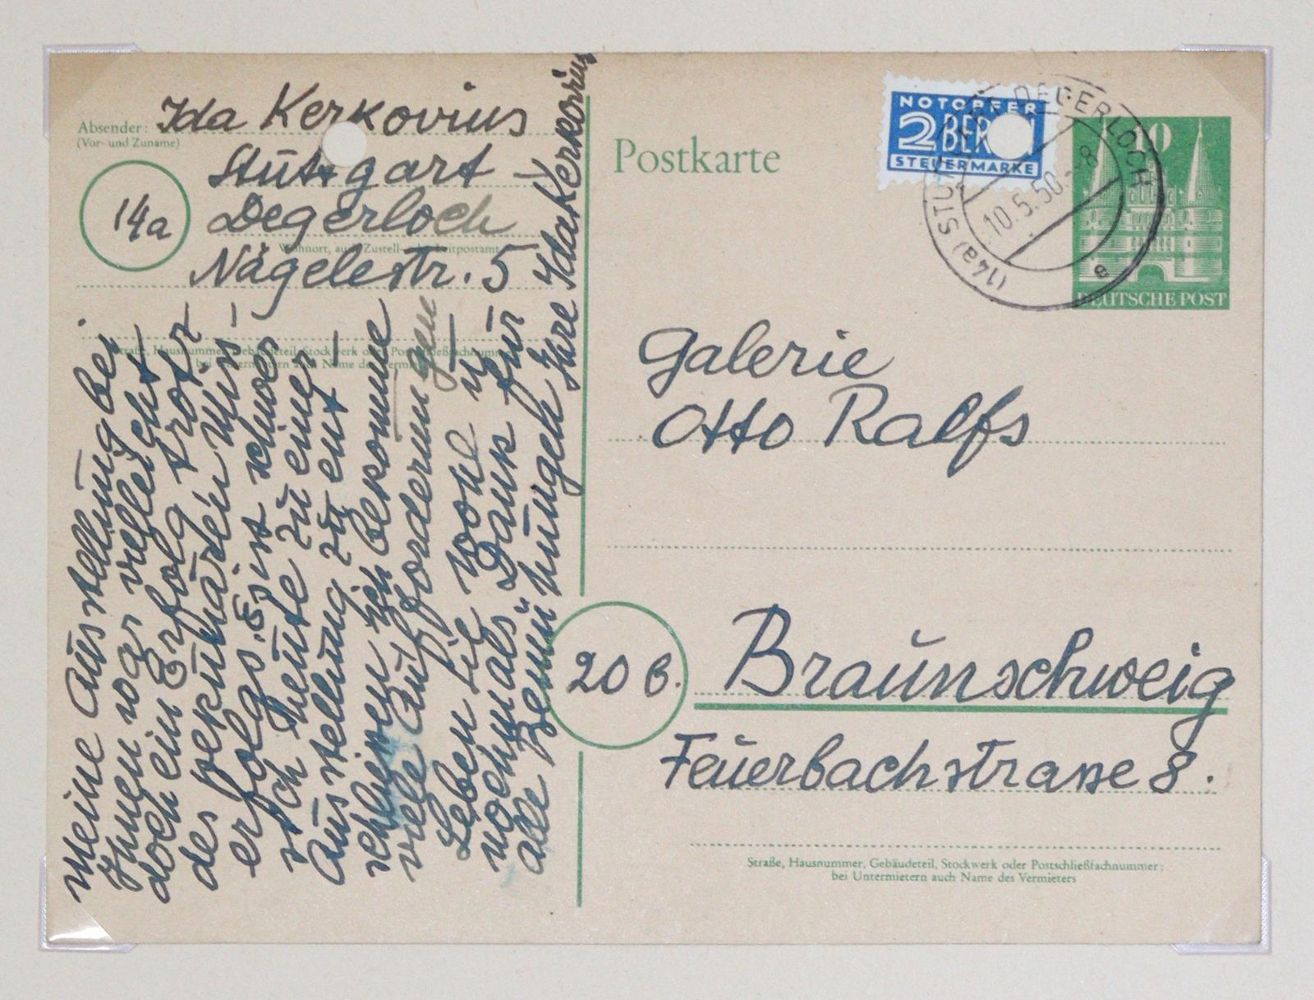 Absender: Ida Kerkovius
(Vor- und Zuname)
Stuttgart -
14a
Degerloch
Wohnort, auch Zustell- oder Leitpostamt
Nägelestr. 5
Straße, Hausnummer, Gebäudeteil, Stockwerk oder Postschließfachnummer;
bei Untermietern auch Name des Vermieters
meine Ausstellung bei
Ihnen war vielleicht
doch ein Erfolg trotz
des pekuniären Miss-
erfolgs. Es ist schwer
sich heute zu einer
Ausstellung zu ent-
schliessen ich bekomme
viele Aufforderungen
Leben Sie wohl u.
nochmals Dank für
alle Bemühungen Ihre Ida Kerkovius
Postkarte
NOTOPFER
2 BER
STEUERMARKE
(14a) STUTTGART-DEGERLOCH
10.5.50.-8
e
10
DEUTSCHE POST
Galerie
Otto Ralfs
20 b.
Braunschweig
Feuerbachstrasse 8.
Straße, Hausnummer, Gebäudeteil, Stockwerk oder Postschließfachnummer;
bei Untermietern auch Name des Vermieters